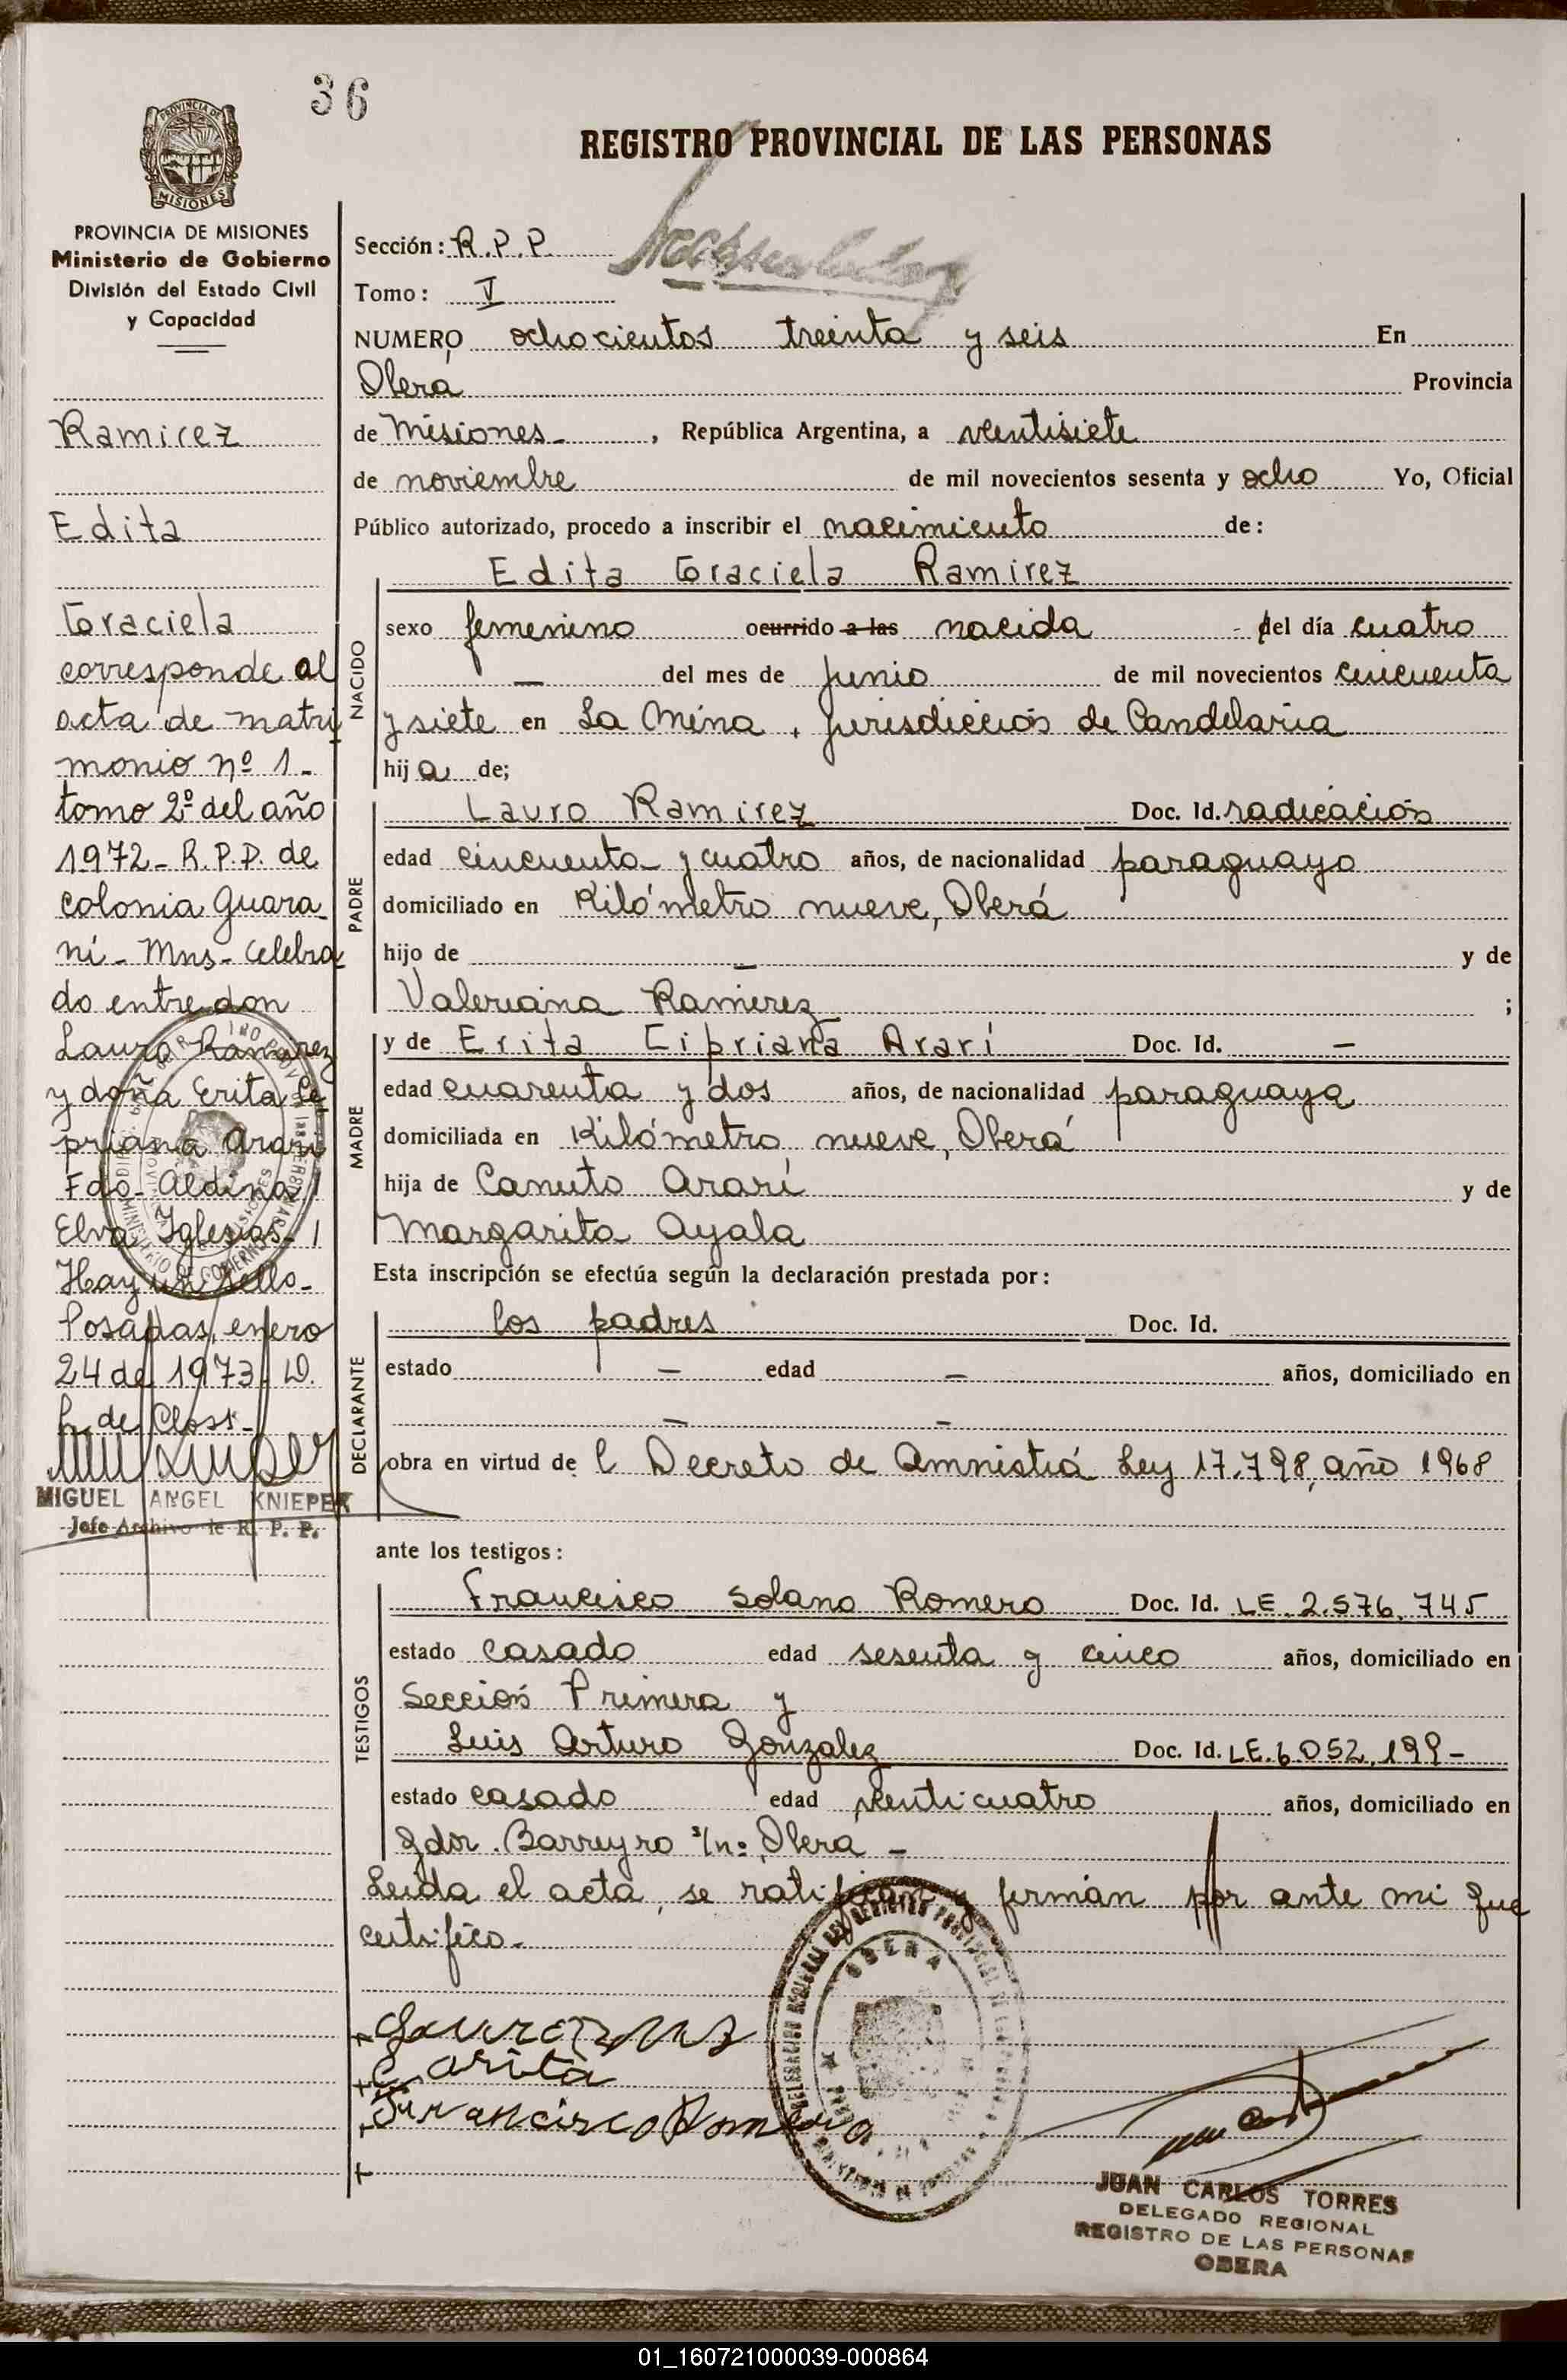 36
REGISTRO PROVINCIAL DE LAS PERSONAS
PROVINCIA DE
MISIONES
PROVINCIA DE MISIONES
Ministerio de Gobierno
División del Estado Civil
y Capacidad
Ramirez
Edita
Graciela
corresponde al
acta de matri
monio nº 1-
tomo 2º del año
1972- R.P.P. de
Colonia Guara
ní- Mns- Celebra
do entre don
Lauro Ramirez
y doña Erita Ci
priana Ararí
Fdo- Aldina
Elva Iglesias-
Hay un sello-
Posadas, enero
24 de 1973.
de Closs-
MIGUEL ANGEL KNIEPER
Jefe Archivo de R. P. P.
Sección: R.P.P.
Tomo: V
NUMERO ochocientos treinta y seis En
Oberá Provincia
de Misiones-, República Argentina, a veintisiete
de noviembre de mil novecientos sesenta y ocho Yo, Oficial
Público autorizado, procedo a inscribir el nacimiento de:
Edita Graciela Ramirez
NACIDO
sexo femenino ocurrido a las nacida - del día cuatro
— del mes de junio de mil novecientos cincuenta
y siete en La Mina, jurisdicción de Candelaria
hija de;
PADRE
Lauro Ramirez Doc. Id. radicación
edad cincuenta y cuatro años, de nacionalidad paraguayo
domiciliado en Kilómetro nueve, Oberá
hijo de — y de
Valeriana Ramirez ;
MADRE
y de Erita Cipriana Ararí Doc. Id. —
edad cuarenta y dos años, de nacionalidad paraguaya
domiciliada en Kilómetro nueve, Oberá
hija de Canuto Ararí y de
Margarita Ayala
Esta inscripción se efectúa según la declaración prestada por:
DECLARANTE
los padres Doc. Id.
estado — edad — años, domiciliado en
— —
obra en virtud de l Decreto de Amnistiá Ley 17.798, año 1968
ante los testigos:
TESTIGOS
Francisco Solano Romero Doc. Id. LE. 2.576.745
estado casado edad sesenta y cinco años, domiciliado en
Sección Primera y
Luis Arturo Gonzalez Doc. Id. LE. 6.052.199-
estado casado edad veinticuatro años, domiciliado en
Gdor. Barreyro s/n: Oberá -
Leída el acta, se ratifican y firman por ante mi que
certifico-
OBERA
Francisco Romero
JUAN CARLOS TORRES
DELEGADO REGIONAL
REGISTRO DE LAS PERSONAS
OBERA
01_160721000039-000864